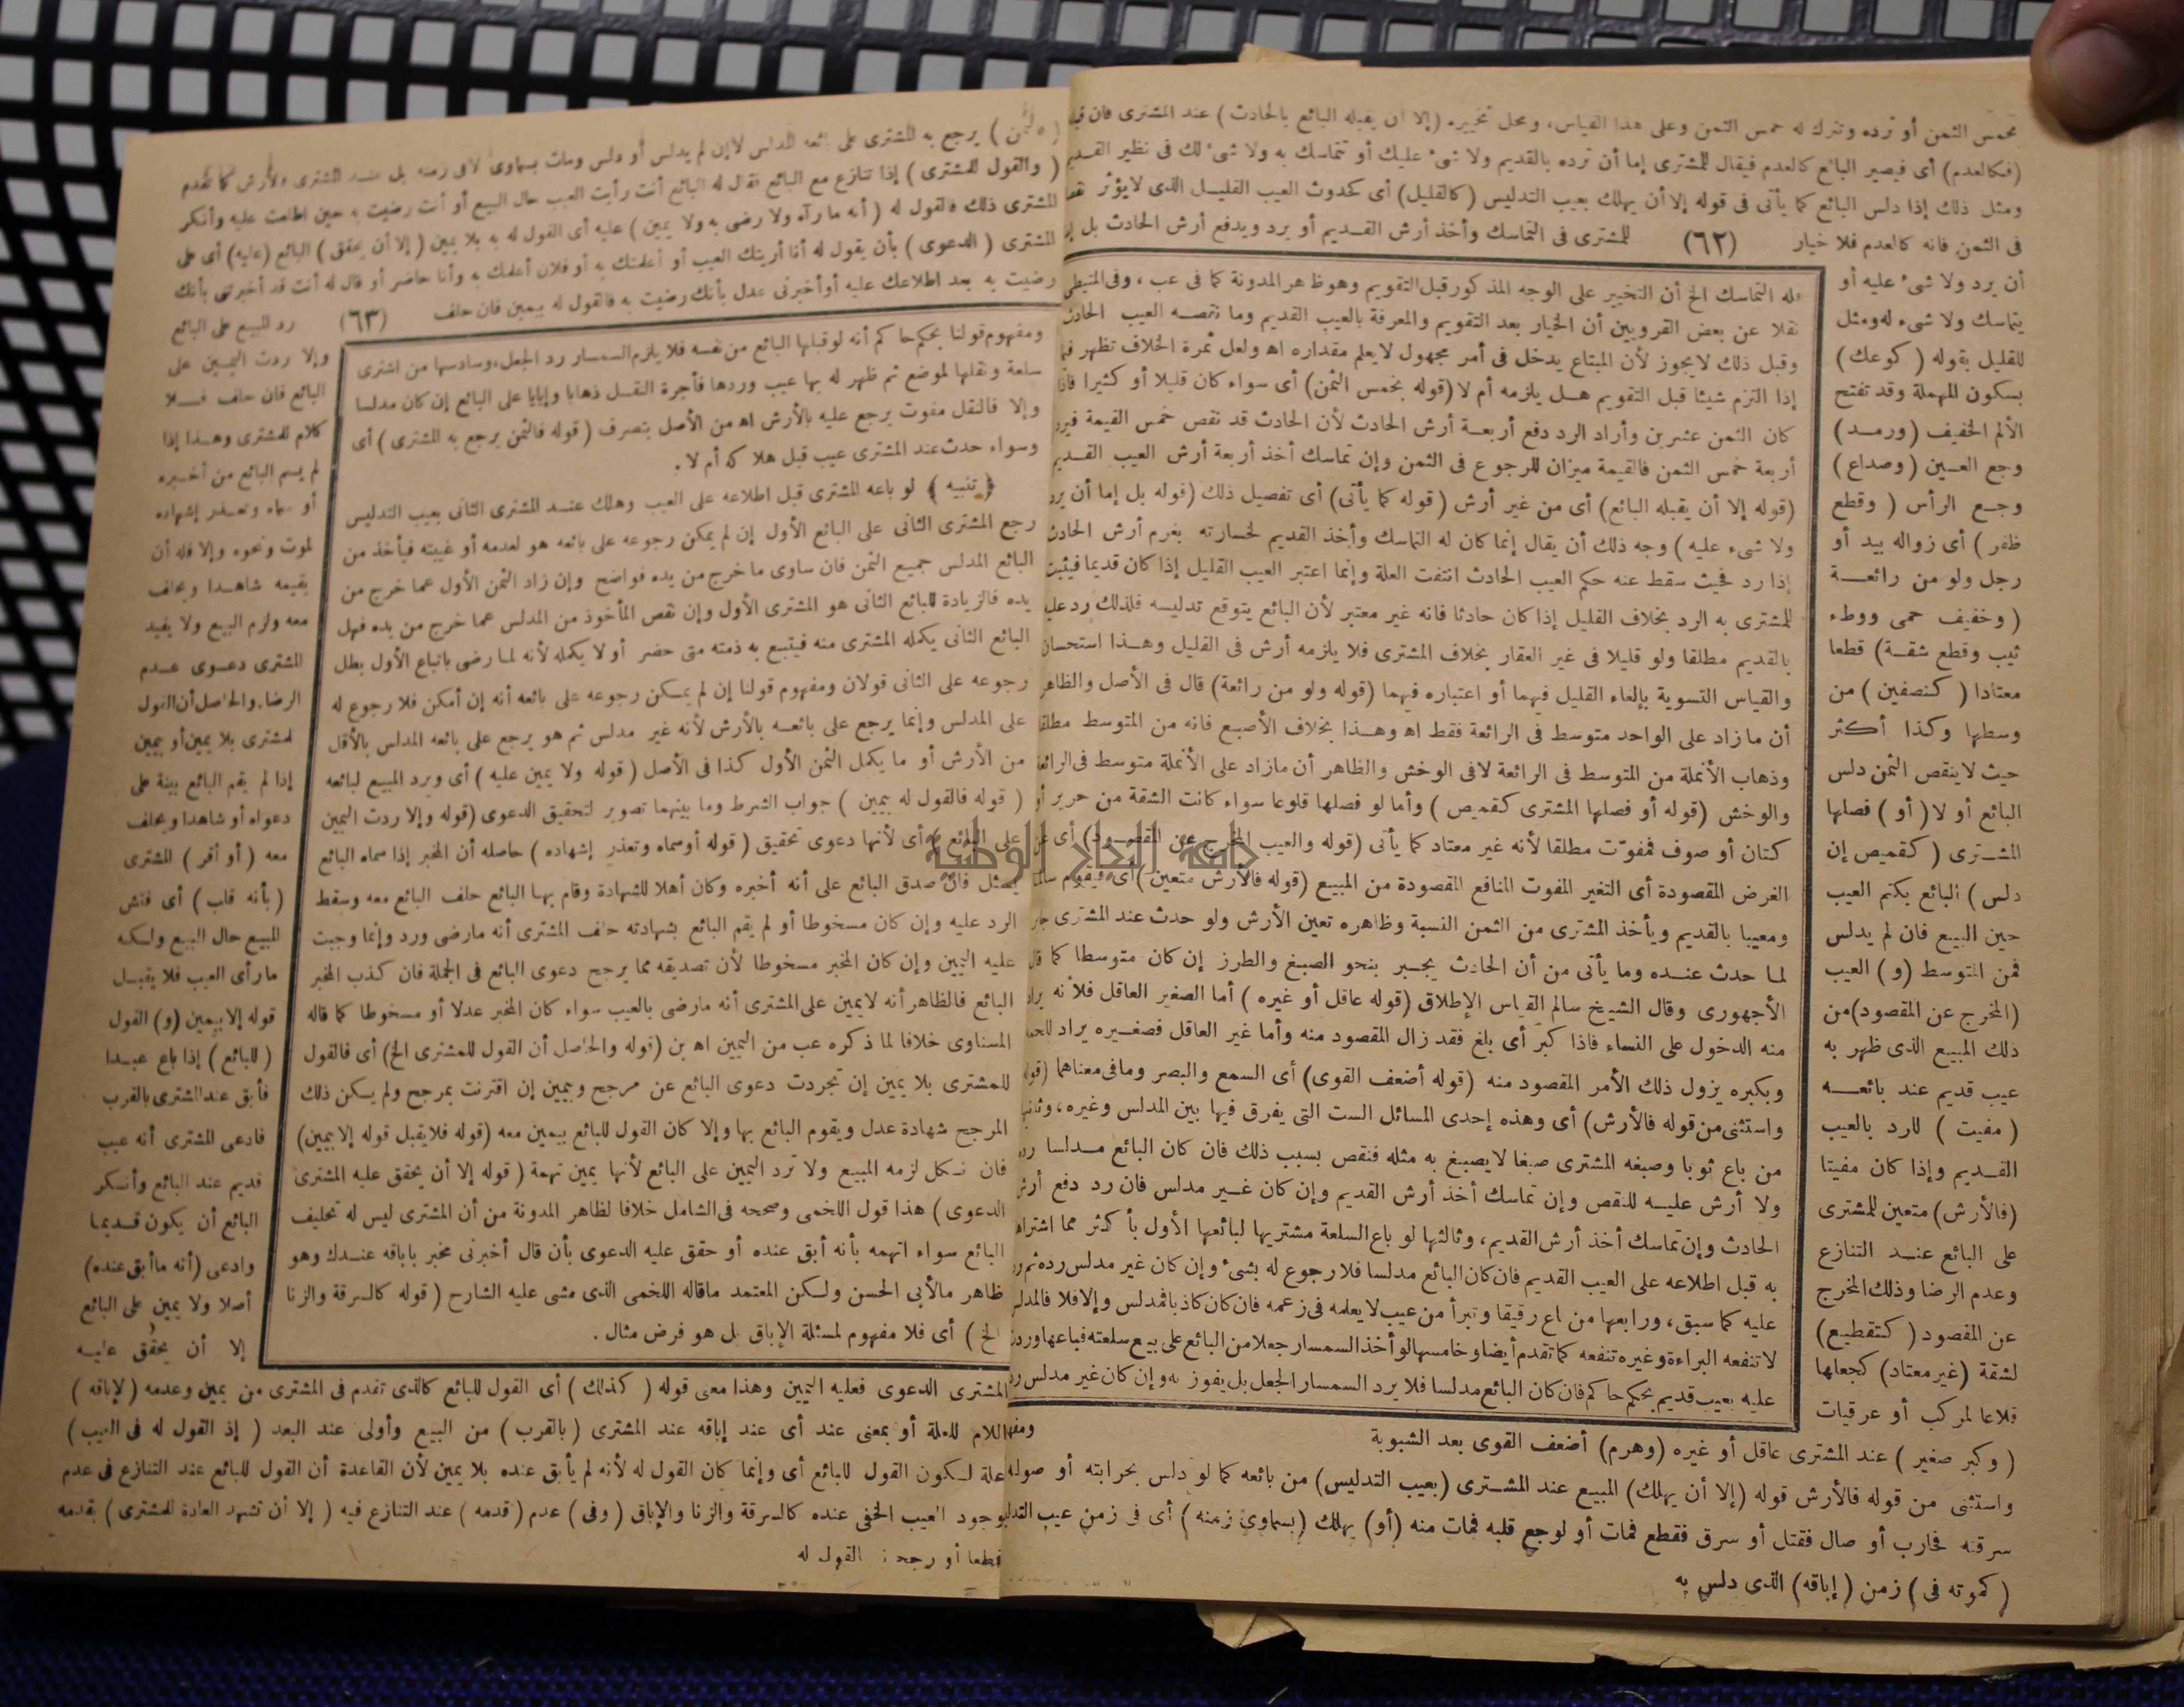 بخمس الثمن أو ترده وتترك له خمس الثمن وعلى هذا القياس، ومحل تخييره (إلا أن يقبله البائع بالحادث) عند المشترى فان قبله
(فكالعدم) أى فيصير البائع كالعدم فيقال للمشترى إما أن ترده بالقديم ولا شىء عليك أو تتماسك به ولا شىء لك فى نظير القديم
ومثل ذلك إذا دلس البائع كما يأتى فى قوله إلا أن يهلك بعيب التدليس (كالقليل) أى كحدوث العيب القليل الذى لا يؤثر
فى الثمن فانه كالعدم فلا خيار (٦٢) للمشترى فى التماسك وأخذ أرش القديم أو يرد ويدفع أرش الحادث بل
أن يرد ولا شىء عليه أو
يتماسك ولا شىء له ومثل
للقليل بقوله (كوعك)
بسكون المهملة وقد تفتح
الألم الخفيف (ورمد)
وجع العين (وصداع)
وجع الرأس (وقطع
ظفر) أى زواله بيد أو
رجل ولو من رائعة
(وخفيف حمى ووطء
ثيب وقطع شقة) قطعا
معتادا (كنصفين) من
وسطها وكذا أكثر
حيث لا ينقص الثمن دلس
البائع أو لا (أو) فصلها
المشترى (كقميص إن
دلس) البائع بكتم العيب
حين البيع فان لم يدلس
فمن المتوسط (و) العيب
(المخرج عن المقصود) من
ذلك المبيع الذى ظهر به
عيب قديم عند بائعه
(مفيت) للرد بالعيب
القديم وإذا كان مفيتا
(فالأرش) متعين للمشترى
على البائع عند التنازع
وعدم الرضا وذلك المخرج
عن المقصود (كتقطيع)
لشقة (غير معتاد) كجعلها
قلاعا لمركب أو عرقيات
فله التماسك الخ أن التخيير على الوجه المذكور قبل التقويم وهو ظاهر المدونة كما فى عب، وفى المتيطى
نقلا عن بعض القرويين أن الخيار بعد التقويم والمعرفة بالعيب القديم وما نقصه العيب الحادث
وقبل ذلك لا يجوز لأن المبتاع يدخل فى أمر مجهول لا يعلم مقداره اه ولعل ثمرة الخلاف تظهر فيما
إذا التزم شيئا قبل التقويم هل يلزمه أم لا (قوله بخمس الثمن) أى سواء كان قليلا أو كثيرا فاذا
كان الثمن عشرين وأراد الرد دفع أربعة أرش الحادث لأن الحادث قد نقص خمس القيمة فيرد
أربعة خمس الثمن فالقيمة ميزان للرجوع فى الثمن وإن تماسك أخذ أربعة أرش العيب القديم
(قوله إلا أن يقبله البائع) أى من غير أرش (قوله كما يأتى) أى تفصيل ذلك (قوله بل إما أن يرد
ولا شىء عليه) وجه ذلك أن يقال إنما كان له التماسك وأخذ القديم لخسارته بغرم أرش الحادث
إذا رد فحيث سقط عنه حكم العيب الحادث انتفت العلة وإنما اعتبر العيب القليل إذا كان قديما فيثبت
للمشترى به الرد بخلاف القليل إذا كان حادثا فانه غير معتبر لأن البائع يتوقع تدليسه فلذلك رد عليه
بالقديم مطلقا ولو قليلا فى غير العقار بخلاف المشترى فلا يلزمه أرش فى القليل وهذا استحسان
والقياس التسوية بإلغاء القليل فيهما أو اعتباره فيهما (قوله ولو من رائعة) قال فى الأصل والظاهر
أن ما زاد على الواحد متوسط فى الرائعة فقط اه وهذا بخلاف الأصبع فانه من المتوسط مطلقا
وذهاب الأنملة من المتوسط فى الرائعة لا فى الوخش والظاهر أن ما زاد على الأنملة متوسط فى الرائعة
والوخش (قوله أو فصلها المشترى كقميص) وأما لو فصلها قلوعا سواء كانت الشقة من حرير أو
كتان أو صوف فمفوّت مطلقا لأنه غير معتاد كما يأتى (قوله والعيب المخرج عن المقصود) أى عن
الغرض المقصودة أى التغير المفوت المنافع المقصودة من المبيع (قوله فالأرش متعين) أى فيقوم سالما
ومعيبا بالقديم ويأخذ المشترى من الثمن النسبة وظاهره تعين الأرش ولو حدث عند المشترى
لما حدث عنده وما يأتى من أن الحادث يجبر بنحو الصبغ والطرز إن كان متوسطا كما قال
الأجهورى وقال الشيخ سالم القياس الإطلاق (قوله عاقل أو غيره) أما الصغير العاقل فلأنه يراد
منه الدخول على النساء فاذا كبر أى بلغ فقد زال المقصود منه وأما غير العاقل فصغيره يراد
وبكبره يزول ذلك الأمر المقصود منه (قوله أضعف القوى) أى السمع والبصر وما فى معناهما (قوله
واستثنى من قوله فالأرش) أى وهذه إحدى المسائل الست التى يفرق فيها بين المدلس وغيره، وثانيها
من باع ثوبا وصبغه المشترى صبغا لا يصبغ به مثله فنقص بسبب ذلك فان كان البائع مدلسا رد
ولا أرش عليه للنقص وإن تماسك أخذ أرش القديم وإن كان غير مدلس فان رد دفع أرش
الحادث وإن تماسك أخذ أرش القديم، وثالثها لو باع السلعة مشتريها لبائعها الأول بأكثر مما اشتراها
به قبل اطلاعه على العيب القديم فان كان البائع مدلسا فلا رجوع له بشىء وإن كان غير مدلس رده ثم رد
عليه كما سبق، ورابعها من باع رقيقا وتبرأ من عيب لا يعلمه فى زعمه فان كان كاذبا فمدلس وإلا فلا فالمدلس
لا تنفعه البراءة وغيره تنفعه كما تقدم أيضا وخامسها لو أخذ السمسار جعلا من البائع على بيع سلعته فباعها وردت
عليه بعيب قديم بحكم حاكم فان كان البائع مدلسا فلا يرد السمسار الجعل بل يفوز به وإن كان غير مدلس رد
ومفهوم
(وكبر صغير) عند المشترى عاقل أو غيره (وهرم) أضعف القوى بعد الشبوبة
واستثنى من قوله فالأرش قوله (إلا أن يهلك) المبيع عند المشترى (بعيب التدليس) من بائعه كما لو دلس بحرابته أو صوله
سرقته فحارب أو صال فقتل أو سرق فقطع فمات أو لوجع قلبه فمات منه (أو) يهلك (بسماوى زمنه) أى فى زمن عيب التدليس
(كموته فى) زمن (إباقه) الذى دلس به
(فالثمن) يرجع به المشترى على بائعه المدلس لا إن لم يدلس أو دلس ومات بسماوى لا فى زمنه بل عند المشترى فالأرش كما تقدم
(والقول للمشترى) إذا تنازع مع البائع فقال له البائع أنت رأيت العيب حال البيع أو أنت رضيت به حين اطلعت عليه وأنكر
المشترى ذلك فالقول له (أنه ما رآه ولا رضى به ولا يمين) عليه أى القول له به بلا يمين (إلا أن يحقق) البائع (عليه) أى على
المشترى (الدعوى) بأن يقول له أنا أريتك العيب أو أعلمتك به أو فلان أعلمك به وأنا حاضر أو قال له أنت قد أخبرتنى بأنك
رضيت به بعد اطلاعك عليه أو أخبرنى عدل بأنك رضيت به فالقول له بيمين فان حلف (٦٣) رد المبيع على البائع
وإلا ردت اليمين على
البائع فان حلف فلا
كلام للمشترى وهذا إذا
لم يسم البائع من أخبره
أو سماه وتعذر إشهاده
لموت ونحوه وإلا فله أن
يقيمه شاهدا ويحلف
معه ولزم البيع ولا يفيد
المشترى دعوى عدم
الرضا. والحاصل أن القول
للمشترى بلا يمين أو بيمين
إذا لم يقم البائع بينة على
دعواه أو شاهدا ويحلف
معه (أو أقر) المشترى
(بأنه قلب) أى فتش
المبيع حال البيع ولكنه
ما رأى العيب فلا يقبل
قوله إلا بيمين (و) القول
(للبائع) إذا باع عبدا
فأبق عند المشترى بالقرب
فادعى المشترى أنه عيب
قديم عند البائع وأنكر
البائع أن يكون قديما
وادعى (أنه ما أبق عنده)
أصلا ولا يمين على البائع
إلا أن يحقق عليه
ومفهوم قولنا بحكم حاكم أنه لو قبلها البائع من نفسه فلا يلزم السمسار رد الجعل، وسادسها من اشترى
سلعة ونقلها لموضع ثم ظهر له بها عيب وردها فأجرة النقل ذهابا وإيابا على البائع إن كان مدلسا
وإلا فالنقل مفوت يرجع عليه بالأرش اه من الأصل بتصرف (قوله فالثمن يرجع به المشترى) أى
وسواء حدث عند المشترى عيب قبل هلاكه أم لا.
﴿تنبيه﴾ لو باعه المشترى قبل اطلاعه على العيب وهلك عند المشترى الثانى بعيب التدليس
رجع المشترى الثانى على البائع الأول إن لم يمكن رجوعه على بائعه هو لعدمه أو غيبته فيأخذ من
البائع المدلس جميع الثمن فان ساوى ما خرج من يده فواضح وإن زاد الثمن الأول عما خرج من
يده فالزيادة للبائع الثانى هو المشترى الأول وإن نقص المأخوذ من المدلس عما خرج من يده فهل
البائع الثانى يكمله المشترى منه فيتبع به ذمته متى حضر أو لا يكمله لأنه لما رضى باتباع الأول بطل
رجوعه على الثانى قولان ومفهوم قولنا إن لم يمكن رجوعه على بائعه أنه إن أمكن فلا رجوع له
على المدلس وإنما يرجع على بائعه بالأرش لأنه غير مدلس ثم هو يرجع على بائعه المدلس بالأقل
من الأرش أو ما يكمل الثمن الأول كذا فى الأصل (قوله ولا يمين عليه) أى ويرد المبيع لبائعه
(قوله فالقول له بيمين) جواب الشرط وما بينهما تصوير لتحقيق الدعوى (قوله وإلا ردت اليمين
على البائع) أى لأنها دعوى تحقيق (قوله أو سماه وتعذر إشهاده) حاصله أن المخبر إذا سماه البائع
يسئل فان صدق البائع على أنه أخبره وكان أهلا للشهادة وقام بها البائع حلف البائع معه وسقط
الرد عليه وإن كان مسخوطا أو لم يقم البائع بشهادته حلف المشترى أنه ما رضى ورد وإنما وجبت
عليه اليمين وإن كان المخبر مسخوطا لأن تصديقه مما يرجح دعوى البائع فى الجملة فان كذب المخبر
البائع فالظاهر أنه لا يمين على المشترى أنه ما رضى بالعيب سواء كان المخبر عدلا أو مسخوطا كما قاله
المسناوى خلافا لما ذكره عب من اليمين اه بن (قوله والحاصل أن القول للمشترى الخ) أى فالقول
للمشترى بلا يمين إن تجردت دعوى البائع عن مرجح وبيمين إن اقترنت بمرجح ولم يكن ذلك
المرجح شهادة عدل ويقوم البائع بها وإلا كان القول للبائع بيمين معه (قوله فلا يقبل قوله إلا بيمين)
فان نكل لزمه المبيع ولا ترد اليمين على البائع لأنها يمين تهمة (قوله إلا أن يحقق عليه المشترى
الدعوى) هذا قول اللخمى وصححه فى الشامل خلافا لظاهر المدونة من أن المشترى ليس له تحليف
البائع سواء اتهمه بأنه أبق عنده أو حقق عليه الدعوى بأن قال أخبرنى مخبر باباقه عندك وهو
ظاهر ما لأبى الحسن ولكن المعتمد ما قاله اللخمى الذى مشى عليه الشارح (قوله كالسرقة والزنا
الخ) أى فلا مفهوم لمسئلة الإباق بل هو فرض مثال.
المشترى الدعوى فعليه اليمين وهذا معنى قوله (كذلك) أى القول للبائع كالذى تقدم فى المشترى من يمين وعدمه (لإباقه)
اللام للعلة أو بمعنى عند أى عند إباقه عند المشترى (بالقرب) من البيع وأولى عند البعد (إذ القول له فى العيب)
علة لكون القول للبائع أى وإنما كان القول له لأنه لم يأبق عنده بلا يمين لأن القاعدة أن القول للبائع عند التنازع فى عدم
وجود العيب الخفى عنده كالسرقة والزنا والإباق (وفى) عدم (قدمه) عند التنازع فيه (إلا أن تشهد العادة للمشترى) بقدمه
قطعا أو رجحت فالقول له
جامعة النجاح الوطنية